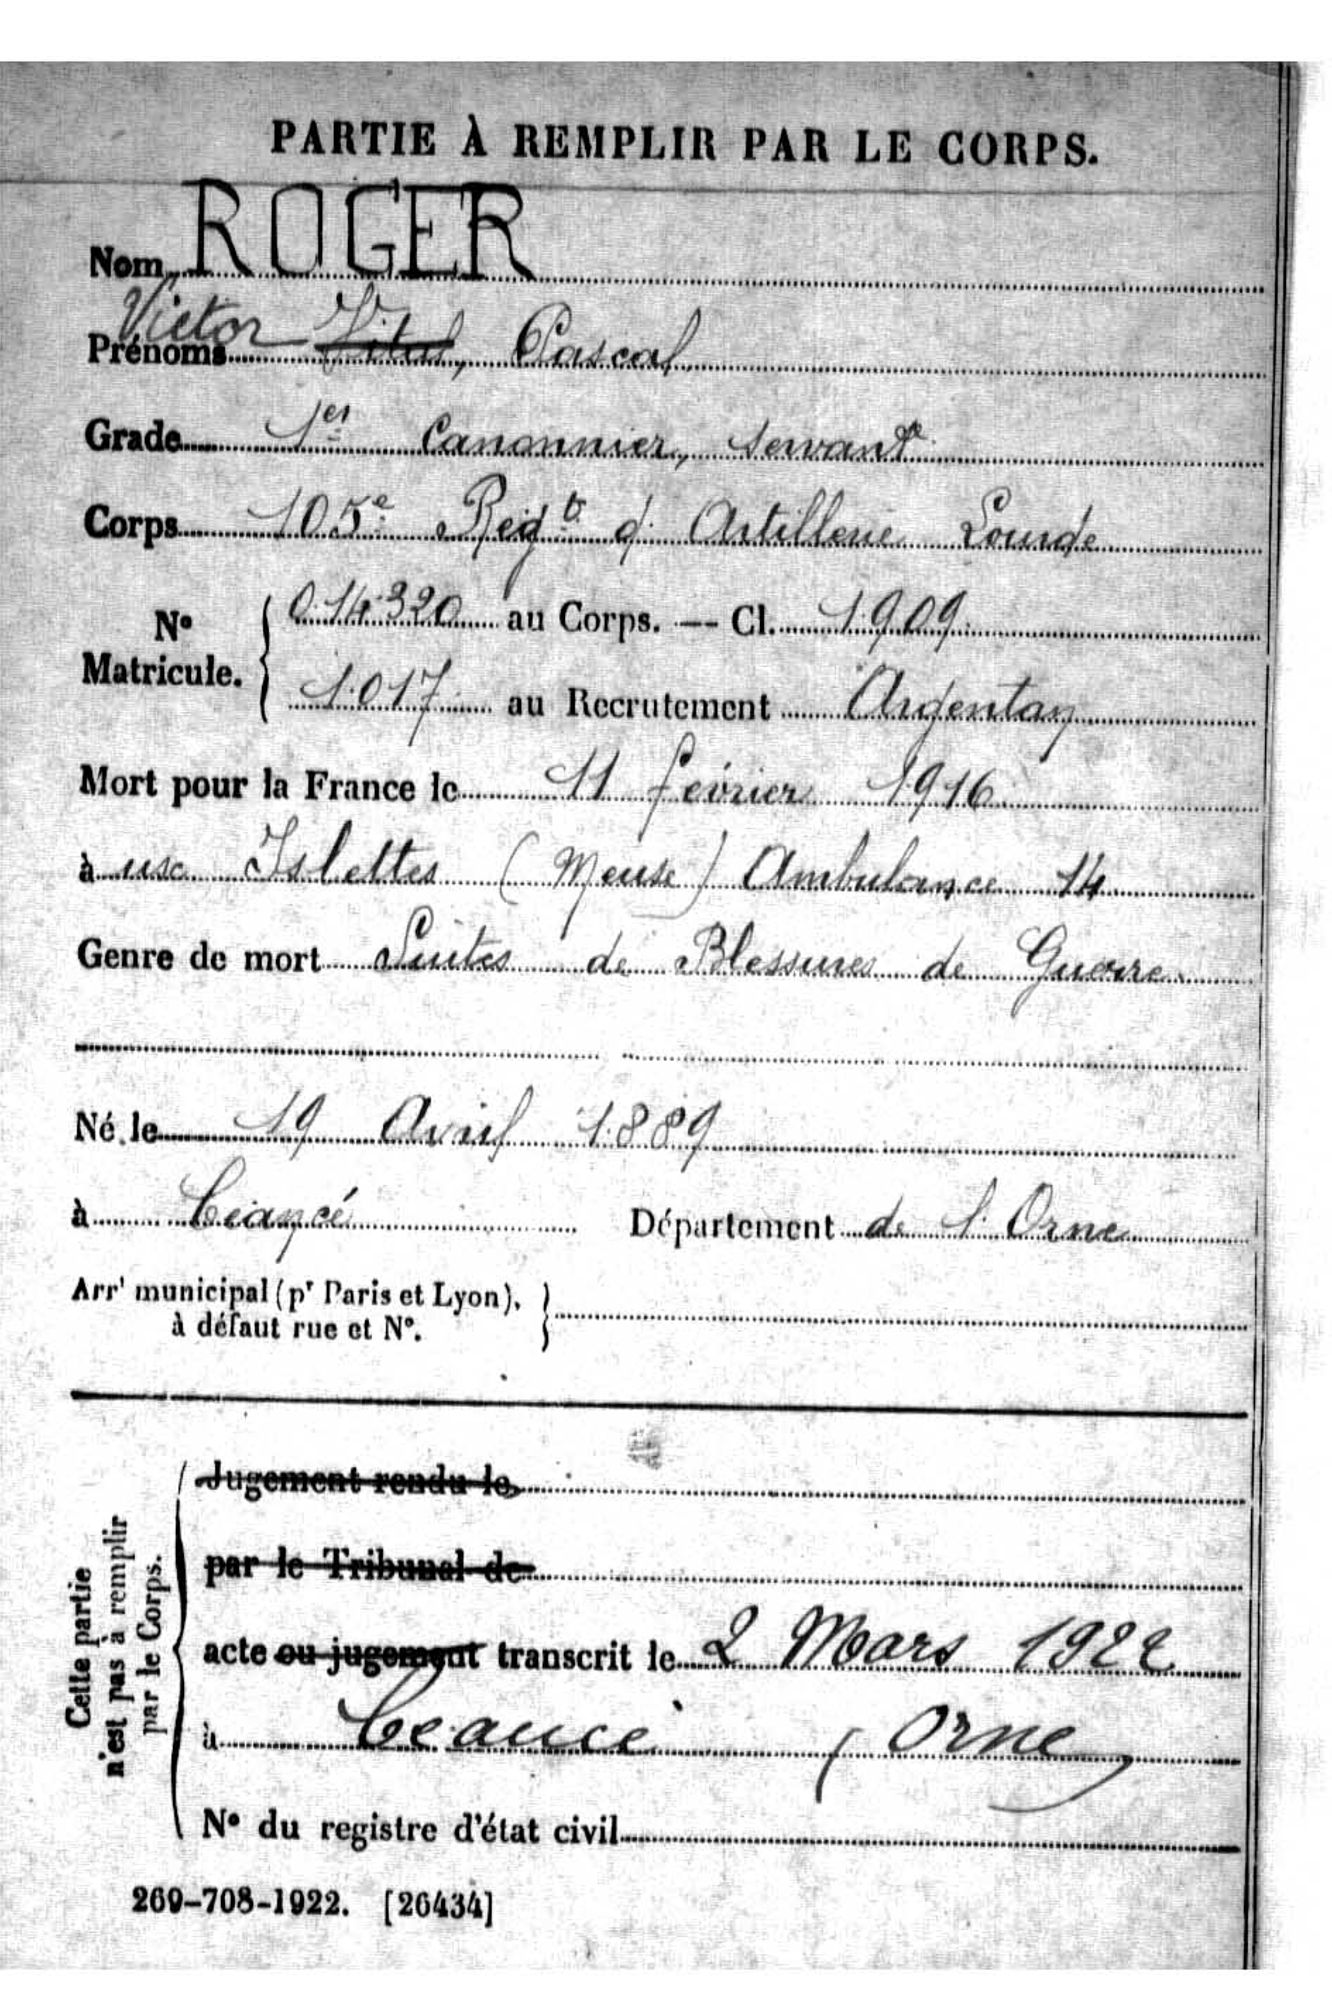 PARTIE À REMPLIR PAR LE CORPS.
Nom ROGER
Prénoms Victor Vital, Pascal
Grade 1er Canonnier, servant
Corps 105e Régt d'Artillerie Lourde
No Matricule. { 0.14320 au Corps. — Cl. 1909
1017 au Recrutement Argentan
Mort pour la France le 11 février 1916
à Islettes (Meuse) Ambulance 14
Genre de mort Suites de Blessures de Guerre
Né le 19 Avril 1889
à Céancé Département de l'Orne
Arrt municipal (pr Paris et Lyon), }
à défaut rue et No.
Cette partie
n'est pas à remplir
par le Corps.
Jugement rendu le
par le Tribunal de
acte ou jugement transcrit le 2 Mars 1922
à Ceaucé (Orne)
No du registre d'état civil
269-708-1922. [26434]